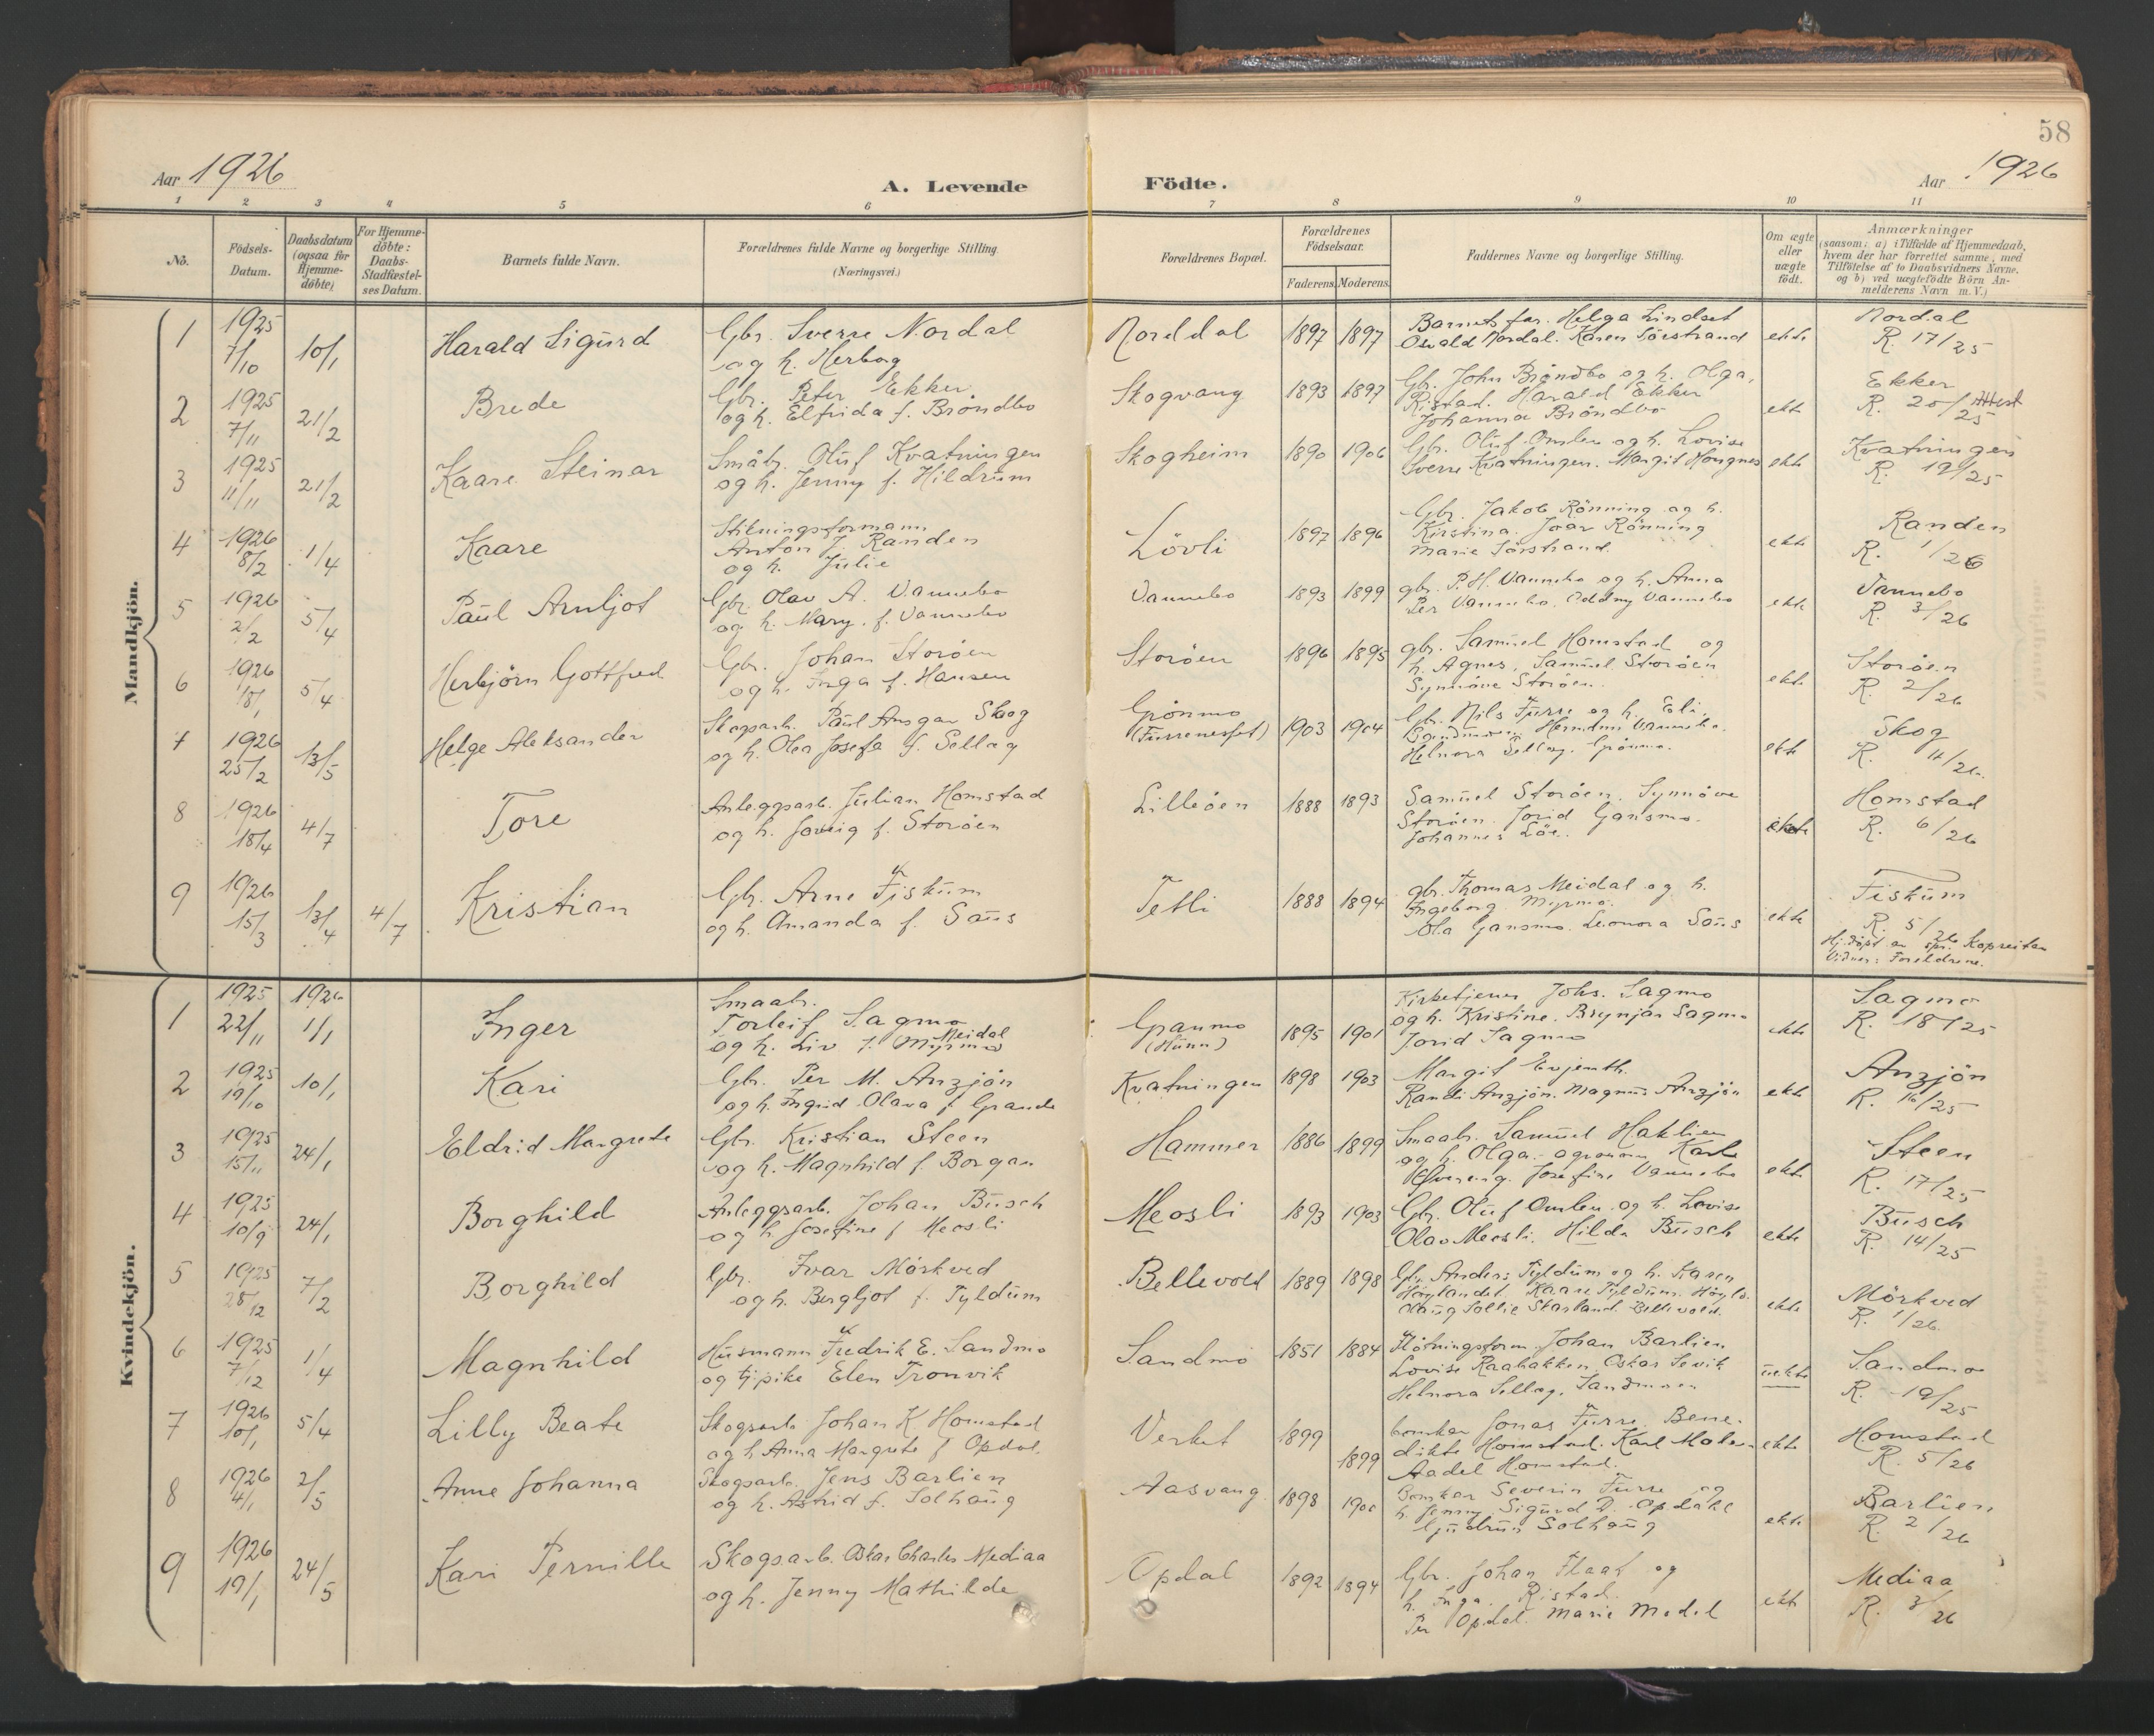 58
Aar 1926
A. Levende Födte.
Aar 1926
1 2 3 4 5 6 7 8 9 10 11
No.
Födsels-Datum.
Daabsdatum (ogsaa for Hjemme-döbte)
For Hjemme-döbte: Daabs-Stadfæstel-ses Datum.
Barnets fulde Navn.
Forældrenes fulde Navne og borgerlige Stilling.
(Næringsvei.)
Forældrenes Bopæl.
Forældrenes Födselsaar.
Faderens. Moderens.
Faddernes Navne og borgerlige Stilling.
Om ægte eller uægte födt.
Anmærkninger
(saasom: a) i Tilfælde af Hjemmedaab,
hvem der har forrettet samme, med
Tilföielse af to Daabsvidners Navne,
og b) ved uægtefödte Börn An-
melderens Navn m. V.)
Mandkjön.
1 1925 7/10 10/1 Harald Sigurd
Gbr. Sverre Nordal
og h. Herborg
Norddal 1897 1897
Barnets far. Helga Lindset
Osvald Nordal. Karen Sörstrand
ekte
Nordal
R. 17/25
2 1925 7/11 21/2 Brede
Gbr. Peter Ekker
og h. Elfrida f. Bröndbo
Skogvang 1893 1897
Gbr. John Bröndbo og h. Olga,
Ristad. Harald Ekker
Johanna Bröndbo
ekte
Ekker
R. 20/25 Attest
3 1925 11/11 21/2 Kaare Steinar
Småbr. Oluf Kvatningen
og h. Jenny f. Hildrum
Skogheim 1890 1906
Gbr. Oluf Omlien og h. Lovise
Sverre Kvatningen. Margit Hongnes
ekte
Kvatningen
R. 19/25
4 1926 8/2 1/4 Kaare
Stikningsformann
Anton J. Randen
og h. Julie
Lövli 1897 1896
Gbr. Jakob Rönning og h.
Kirstina. Joar Rönning
Marie Sörstrand.
ekte
Randen
R. 1/26
5 1926 2/2 5/4 Paul Arnljot
Gbr. Olav A. Vannebo
og h. Mary f. Vannebo
Vannebo 1893 1899
gbr. P. H. Vannebo og h. Anna
Per Vannebo. Oddny Vannebo
ekte
Vannebo
R. 3/26
6 1926 18/1 5/4 Herbjörn Gottfred
Gbr. Johan Storöen
og h. Inga f. Hansen
Storöen 1896 1895
gbr. Samuel Homstad og
h. Agnes, Samuel Storöen
Synnöve Storöen.
ekte
Storöen
R. 2/26
7 1926 25/2 13/5 Helge Aleksander
Skogsarb. Paul Ansgar Skog
og h. Olea Josefa f. Sellæg
Grönmo
(Furrenesset) 1903 1904
Gbr. Nils Furre og h. Eli.
Vannebo.
Helnora Sellæg. Grönmo.
ekte
Skog
R. 4/26.
8 1926 18/4 4/7 Tore
Anleggsarb. Julian Homstad
og h. Solveig f. Storöen
Lilleöen 1888 1893
Samuel Storöen. Synnöve
Storöen. Jorid Gansmo.
Johannes Löe.
ekte
Homstad
R. 6/26
9 1926 15/3 13/4 4/7 Kristian
Gbr. Arne Fiskum
og h. Amanda f. Saus
Tetli 1888 1894
gbr. Thomas Meidal og h.
Ingeborg Myrmo.
Ola Gansmo. Leonora Saus
ekte
Fiskum
R. 5/26
Hj. döpt av spr. Kopreitan
Vidner: Foreldrene.
Kvindekjön.
1 1925 22/11 1926 1/1 Inger
Smaabr.
Torleif Sagmo
og h. Liv f. Myrmo Meidal
Granmo
(Hunn) 1895 1901
Kirketjener Johs. Sagmo
og h. Kristine. Brynjar Sagmo
Jorid Sagmo
ekte
Sagmo
R. 18/25
2 1925 19/10 10/1 Kari
Gbr. Per M. Anzjön
og h. Ingrid Olava f. Grande
Kvatningen 1898 1903
Margit Evjenth.
Randi Anzjön. Magnus Anzjön
ekte
Anzjön
R. 16/25
3 1925 15/11 24/1 Eldrid Margrete
Gbr. Kristian Steen
og h. Magnhild f. Borgan
Hammer 1886 1899
Smaabr. Samuel Haklien
og h. Olga. agronom Karl
Josefine Vannebo
ekte
Steen
R. 17/25
4 1925 10/9 24/1 Borghild
Anleggsarb. Johan Busch
og h. Josefine f. Meosli
Meosli 1893 1903
Gbr. Oluf Omlien og h. Lovise
Olav Meosli. Hilda Busch
ekte
Busch
R. 14/25
5 1925 28/12 7/2 Borghild
Gbr. Ivar Mörkved
og h. Bergljot f. Tyldum
Bellevold 1889 1898
Gbr. Anders Tyldum og h. Karen
Höylandet. Kaare Tyldum. Höyl.
Haug Sollie Skarland. Bellevold.
ekte
Mörkved
R. 1/26.
6 1925 7/12 1/4 Magnhild
Husmann Fredrik E. Sandmo
og tj.pike Elen Tronvik
Sandmo 1851 1884
Flötningsform. Johan Barlien
Lovise Raabakken. Oskar Sevik
Helnora Sellæg. Sandmoen
uekte
Sandmo
R. 19/25
7 1926 10/1 5/4 Lilly Beate
Skogsarb. Johan K Homstad
og h Anna Margrete f Opdal.
Verket 1899 1899
bomker Jonas Furre. Bene-
dikte Homstad. Karl Moken
Aadel Homstad.
ekte
Homstad
R. 5/26
8 1926 4/1 2/5 Anne Johanna
Skogsarb. Jens Barlien
og h. Astrid f. Solhaug
Aasvang 1898 1900
Bomker Severin Furre og
h. Jenny Sigurd D. Opdahl
Gudrun Solhaug
ekte
Barlien
R. 2/26
9 1926 19/1 24/5 Kari Pernille
Skogsarb. Oskar Charles Mediaa
og h. Jenny Mathilde
Opdal 1892 1894
Gbr. Johan Flaat og
h. Inga. Ristad.
Per Opdal. Marie Modal
ekte
Mediaa
R. 3/26